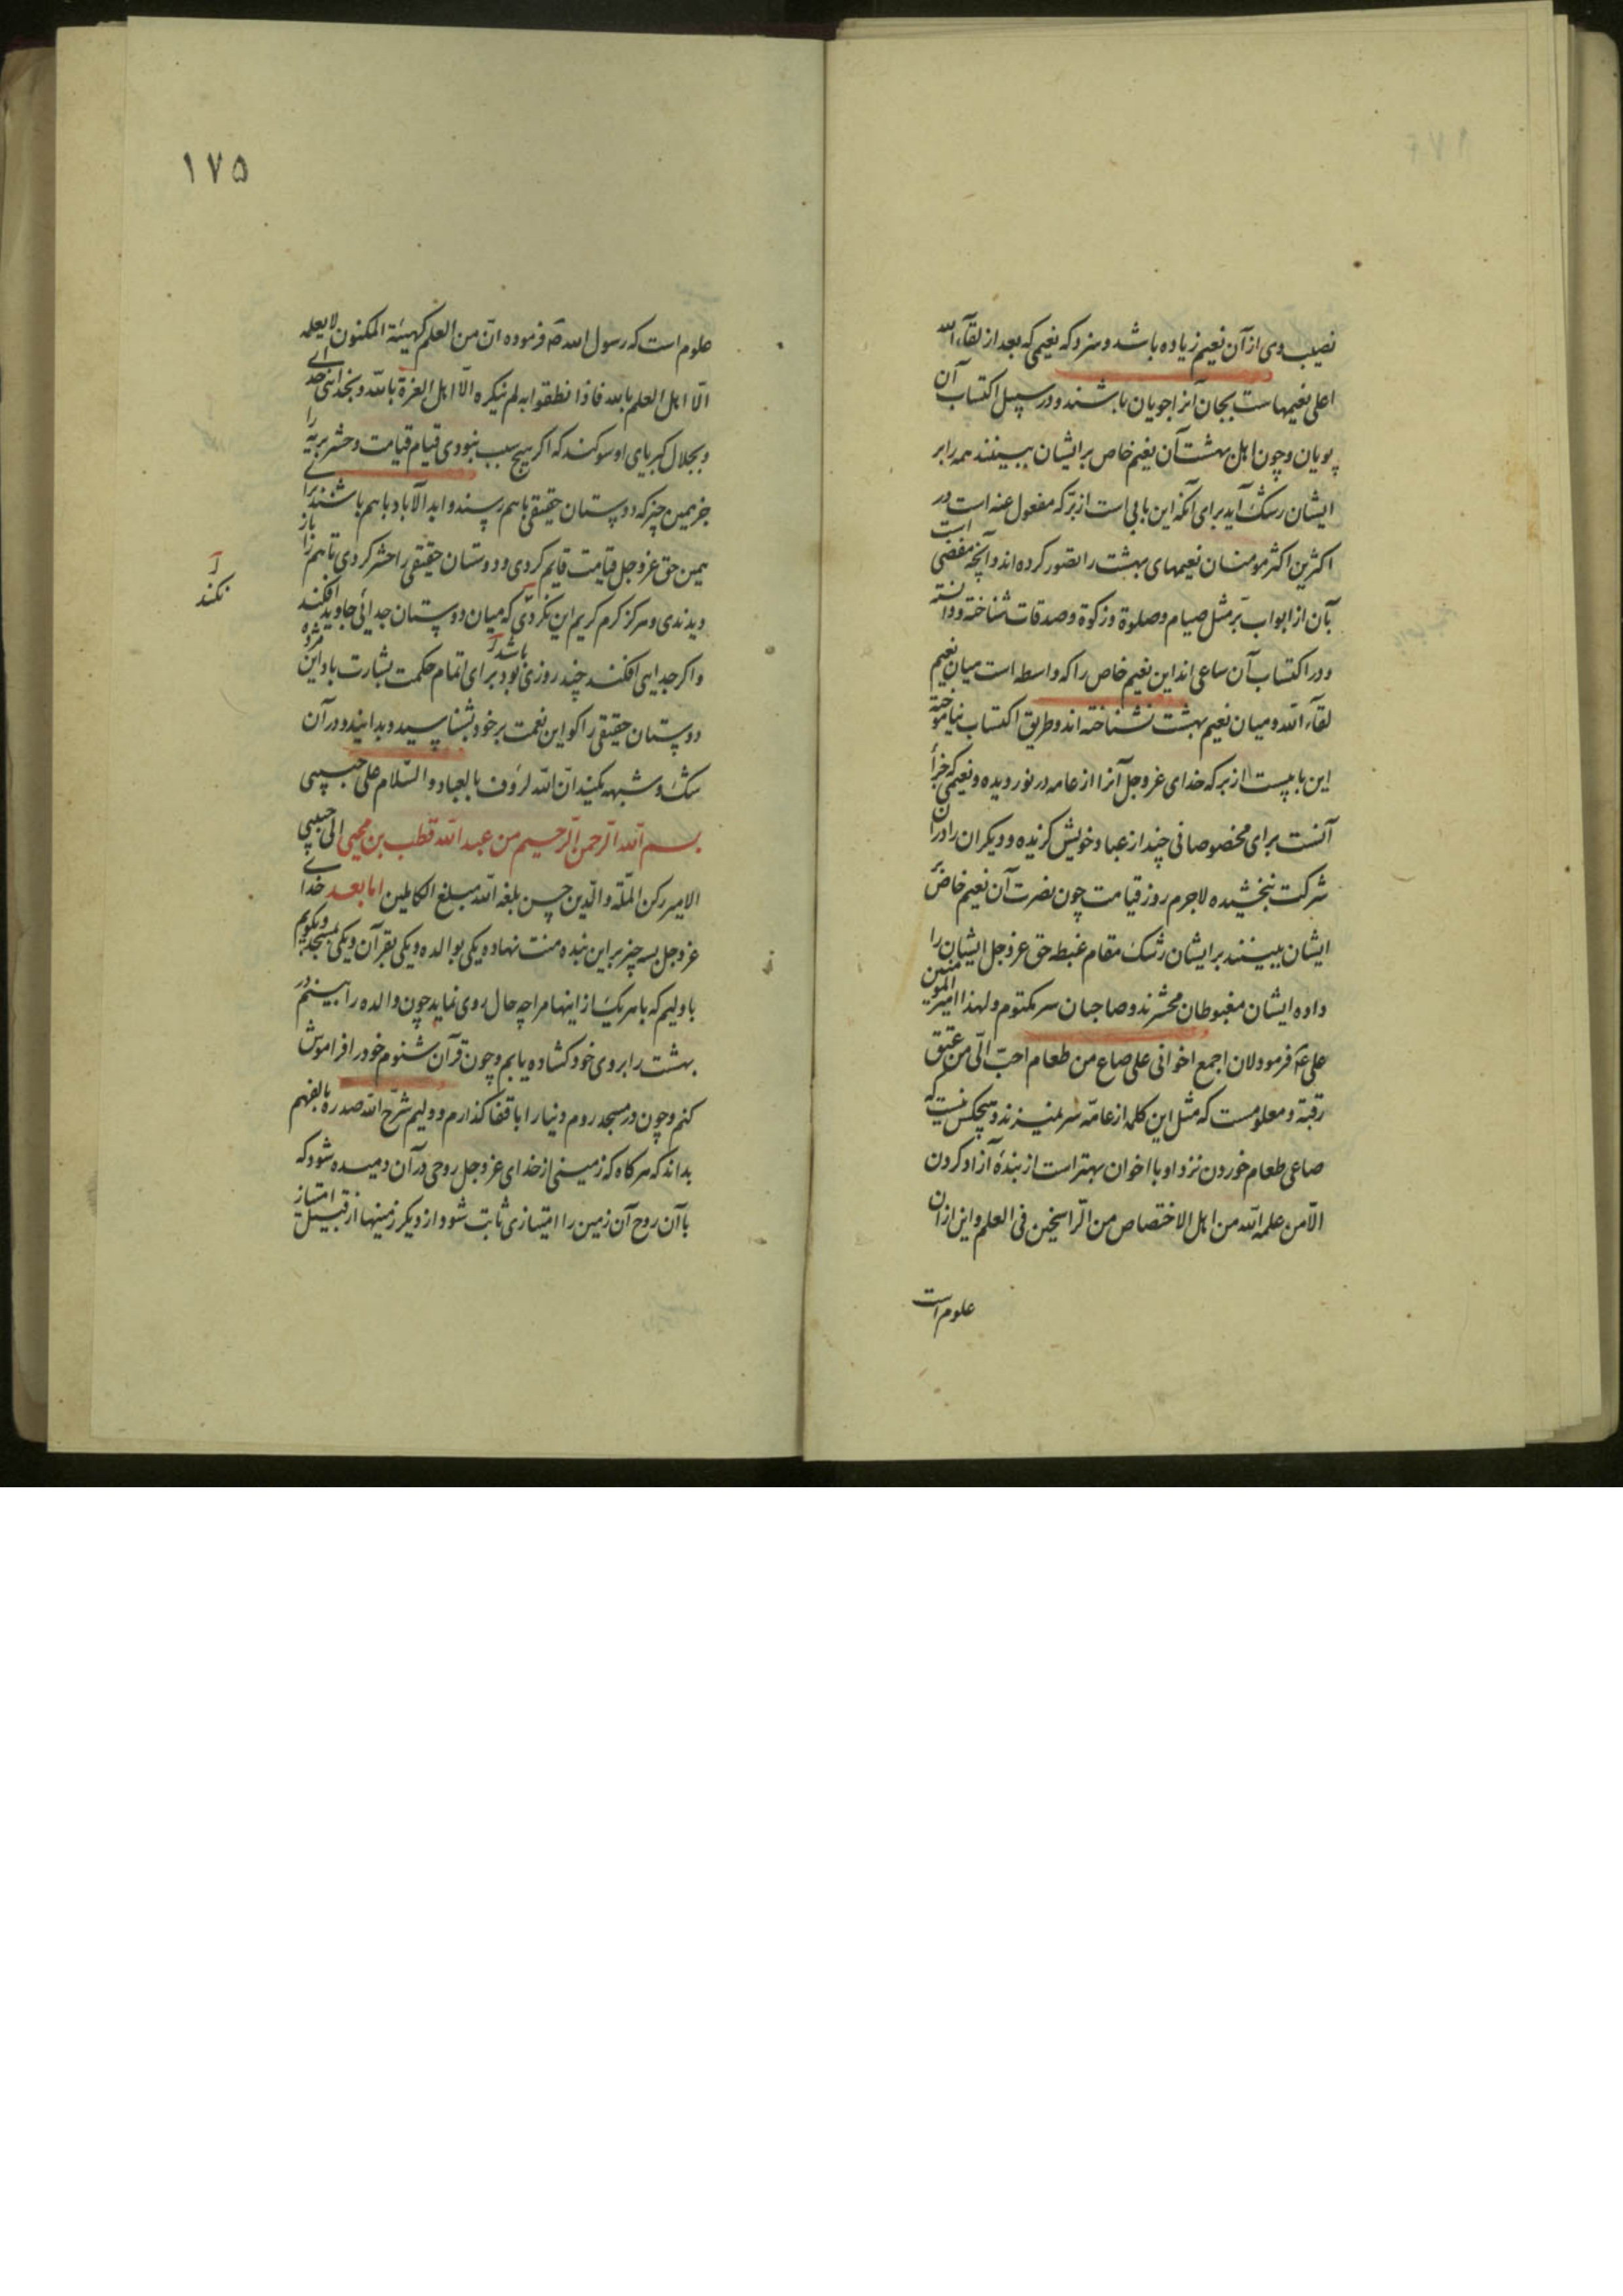 نصیب وی از آن نعیم زیاده باشد و سزد که نعیمی که بعد از لقآء الله
اعلی نعیمهاست بجان آنرا جویان باشند و در سبیل اکتساب آن
پویان و چون اهل بهشت آن نعیم خاص بر ایشان ببینند همه را بر
ایشان رشک آید برای آنکه این بابی است از برّ که مغفول عنه است در
اکثرین اکثر مومنان نعیمهای بهشت را تصور کرده اند و آنچه مفضی است
بآن از ابواب برّ مثل صیام و صلوة و زکوة و صدقات شناخته و دانسته
و در اکتساب آن ساعی اند این نعیم خاص را که واسطه است میان نعیم
لقآء الله و میان نعیم بهشت نشناخته اند و طریق اکتساب نیاموخته
این بابیست از بر که خدای عزوجل آنرا از عامه در نوردیده و نعیمی که جزأ
آنست برای مخصوصانی چند از عباد خویش گزیده و دیگران را در آن
شرکت نبخشیده لاجرم روز قیامت چون نضرت آن نعیم خاص بر
ایشان ببینند بر ایشان رشک مقام غبطه حق عزوجل ایشان را
داده ایشان مغبوطان محشرند و صاحبان سر مکتوم و لهذا امیر المومنین
علی عه فرمود لان اجمع اخوانی علی صاع من طعام احبّ الیّ من عتق
رقبة و معلومست که مثل این کلمه از عامّه سر نمیزند و هیچکس نیست که
صاعی طعام خوردن نزد او با اخوان بهتر است از بندهٔ آزاد کردن
الّا من علمه الله من اهل الاختصاص من الرّاسخین فی العلم و این از آن
علوم است
۱۷۵
علوم است که رسول الله صه فرموده انّ من العلم کهیئة المکنون لا یعلمه
الّا اهل العلم بالله فاذا نطقوا به لم ینکره الّا اهل العزة بالله و بخدائی خدای
و بجلال کبریای او سوکند که اکر هیچ سبب نبودی قیام قیامت و حشر بریه را
جز همین چیز که دوستان حقیقی باهم رسند و ابد الآباد باهم باشند برای
همین حق عزوجل قیامت قایم کردی و دوستان حقیقی را حشر کردی تا هم را باز
دیدندی و هرکز کرم کریم این نکردی که میان دوستان جدائی جاوید افکند
نکند
باشد
و اکر جدایی افکند چند روزی بود برای اتمام حکمت بشارت باد این مژده
دوستان حقیقی را کو این نعمت بر خود بشناسید و بدانید و در آن
شک و شبهه مکنید انّ الله لرؤف بالعباد و السّلام علی حبیبی
بسم الله الرّحمن الرّحیم من عبد الله قطب بن محیی الی حبیبی
الامیر رکن الملّة و الدّین حسن بلغه الله مبلغ الکاملین اما بعد خدای
عزوجل بسه چیز بر این بنده منت نهاد یکی بوالده و یکی بقرآن و یکی بمسجد و بکویم
با ولیم که با هر یک از اینها مرا چه حال روی نماید چون والده را بینم در
بهشت را بروی خود کشاده یابم و چون قرآن شنوم خود را فراموش
کنم و چون در مسجد روم دنیا را با قفا کذارم و ولیم شرّح الله صدره بالفهم
بداند که هر کاه که زمینی از خدای عزوجل روحی در آن دمیده شود که
با آن روح آن زمین را امتیازی ثابت شود از دیکر زمینها از قبیل امتیاز